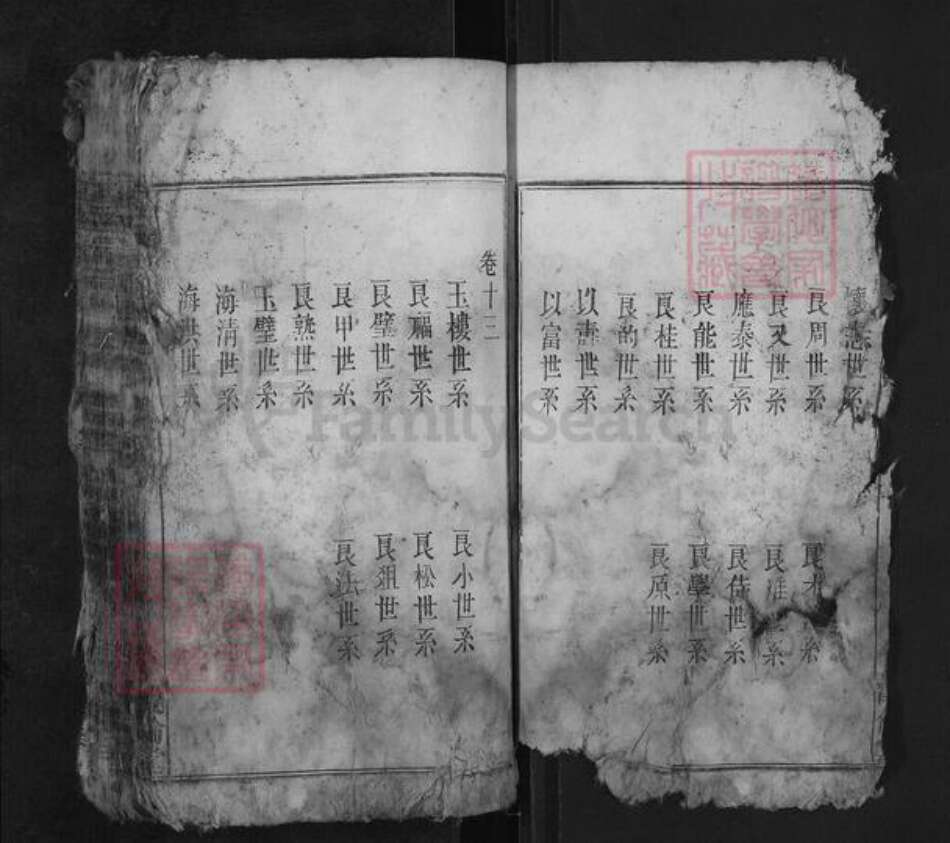 懷志世系
良周世系
良又世系
應泰世系
良能世系
良桂世系
良的世系
以壽世系
以富世系
良 系
良 系
良侍世系
良學世系
良原世系
卷十三
玉樓世系
良福世系
良璧世系
良甲世系
良熟世系
玉璧世系
海清世系
海洪世系
良小世系
良松世系
良狙世系
良法世系
FamilySearch